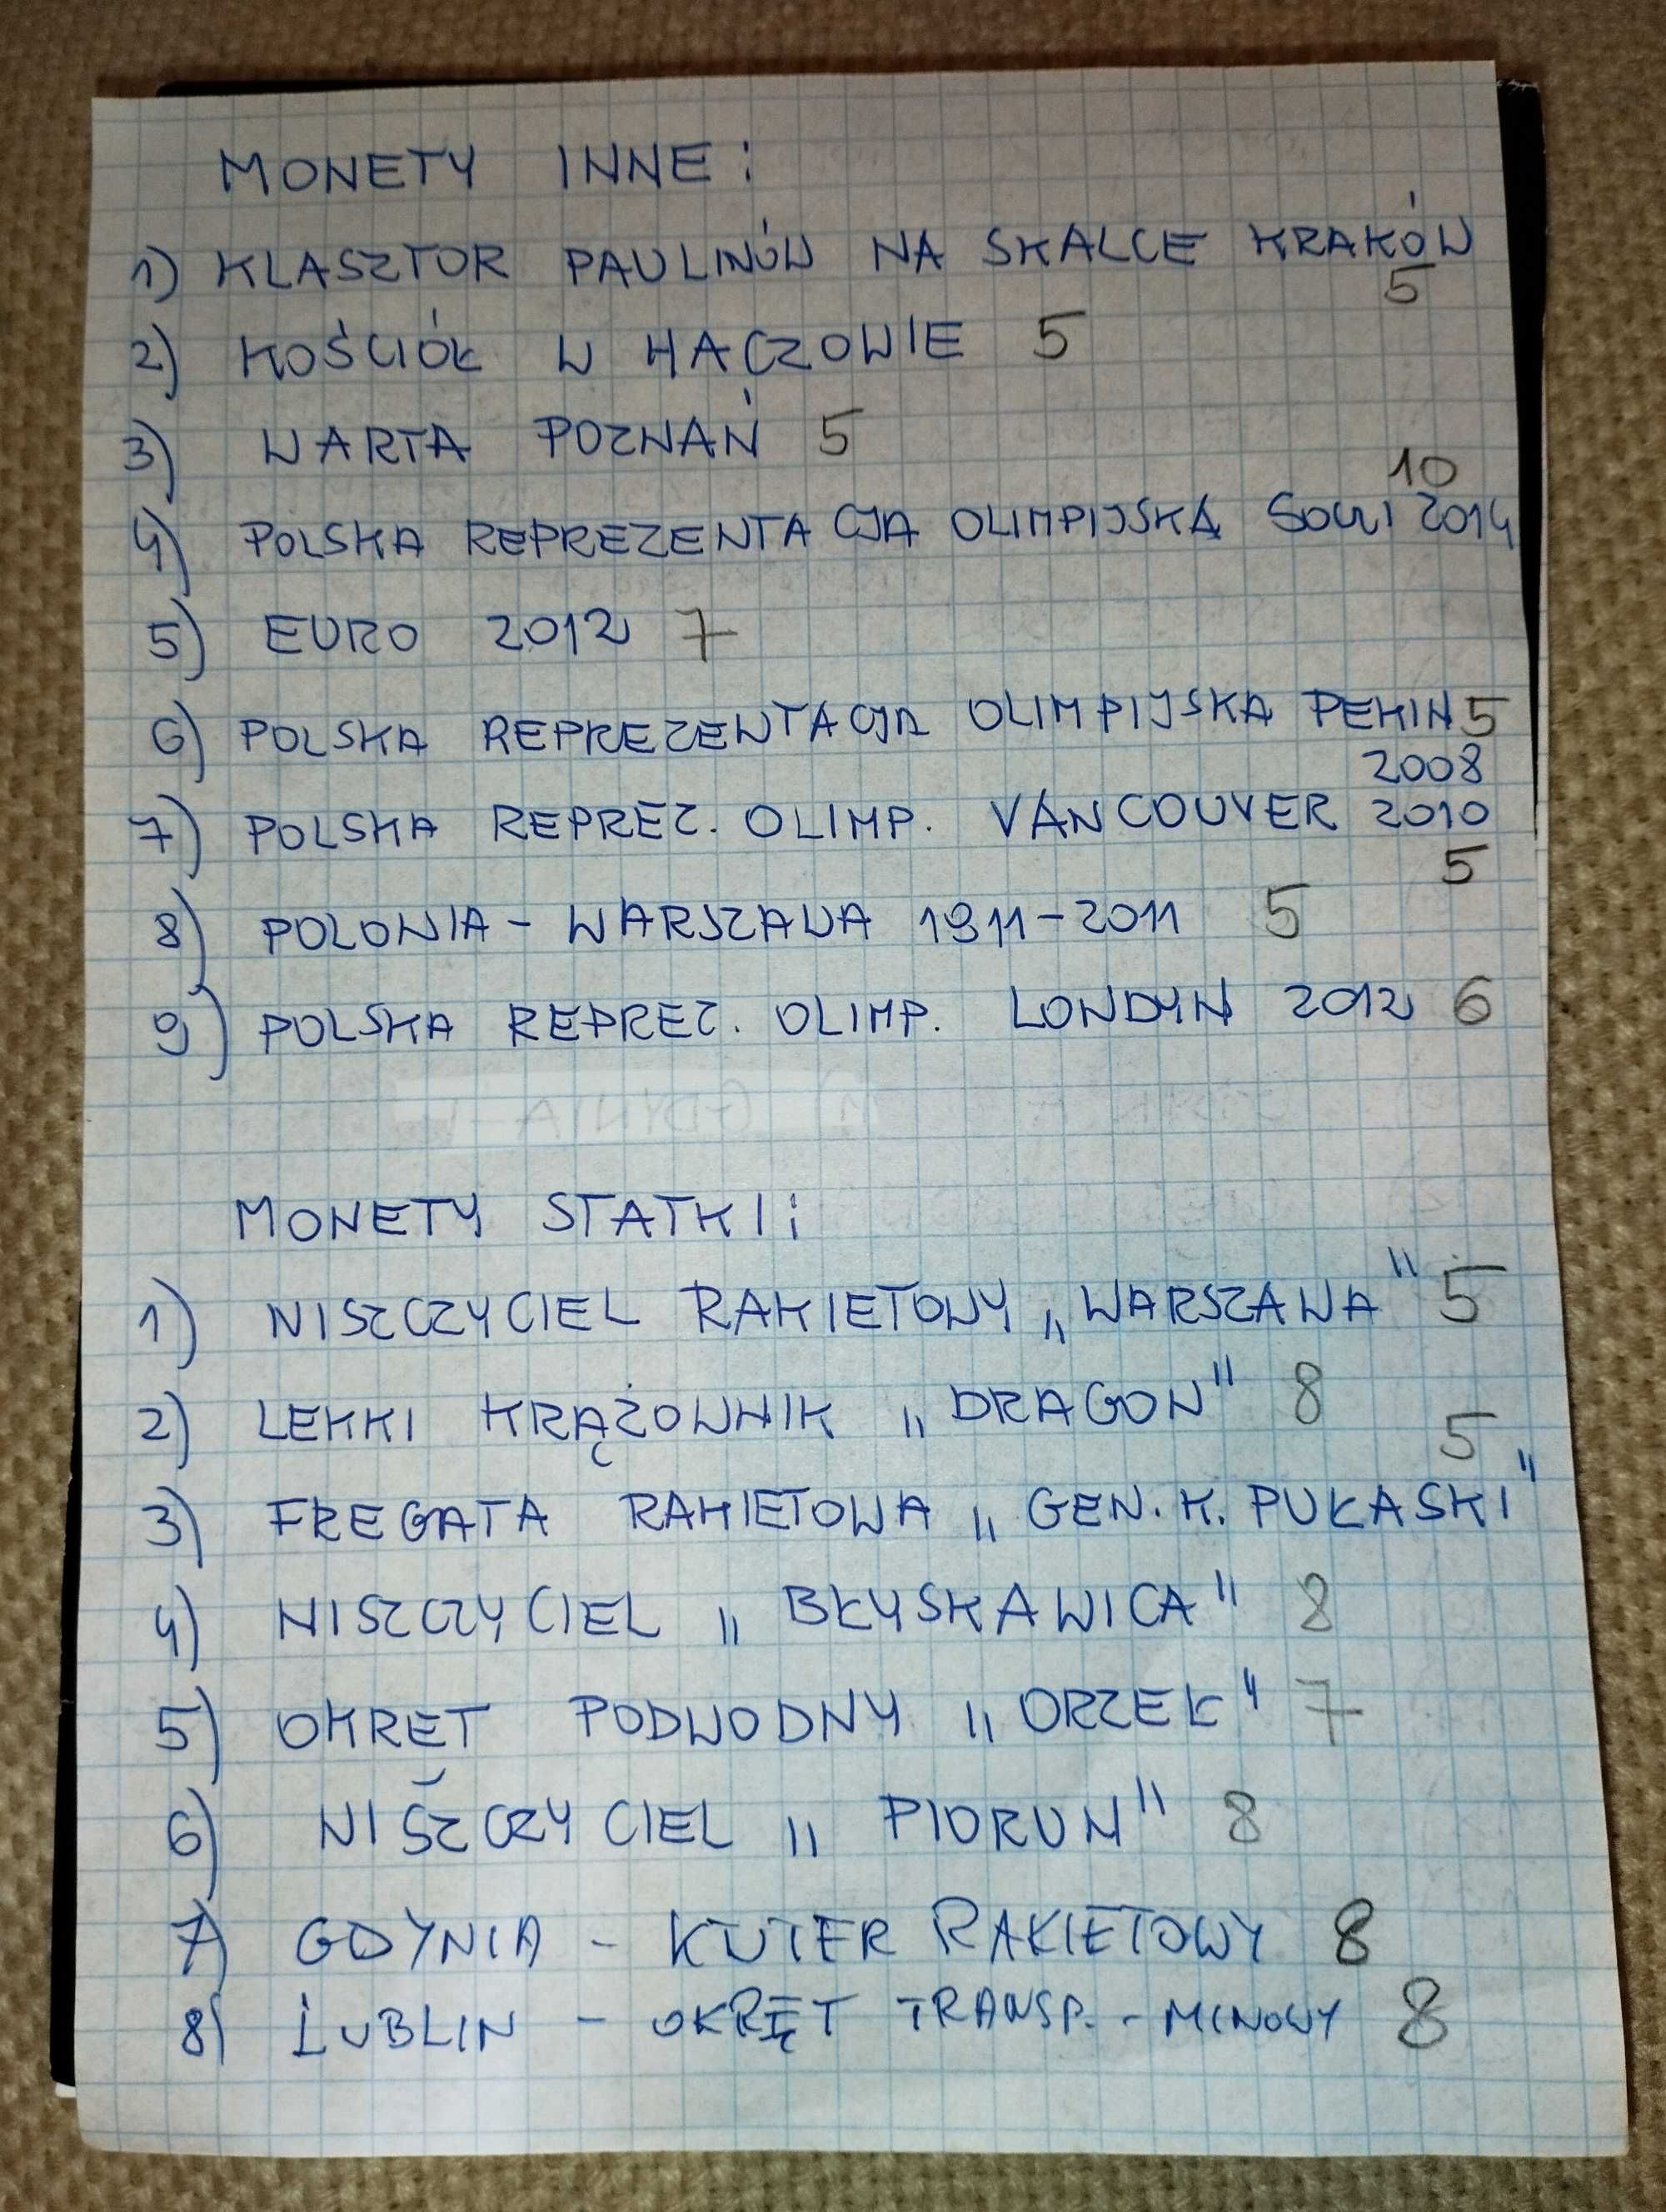 MONETY INNE:
1) KLASZTOR PAULINÓW NA SKALCE KRAKÓW
5
2) KOŚCIÓŁ W HACZOWIE 5
3) WARTA POZNAŃ 5
10
4) POLSKA REPREZENTACJA OLIMPIJSKA SOCZI 2014
5) EURO 2012 7
6) POLSKA REPREZENTACJA OLIMPIJSKA PEKIN 5
2008
7) POLSKA REPREZ. OLIMP. VANCOUVER 2010
5
8) POLONIA - WARSZAWA 1911-2011 5
9) POLSKA REPREZ. OLIMP. LONDYN 2012 6
MONETY STATKI:
1) NISZCZYCIEL RAKIETOWY „WARSZAWA" 5
2) LEKKI KRĄŻOWNIK „DRAGON" 8
5
3) FREGATA RAKIETOWA „GEN. K. PUŁASKI"
4) NISZCZYCIEL „BŁYSKAWICA" 8
5) OKRĘT PODWODNY „ORZEŁ" 7
6) NISZCZYCIEL „PIORUN" 8
7) GDYNIA - KUTER RAKIETOWY 8
8) LUBLIN - OKRĘT TRANSP. - MINOWY 8